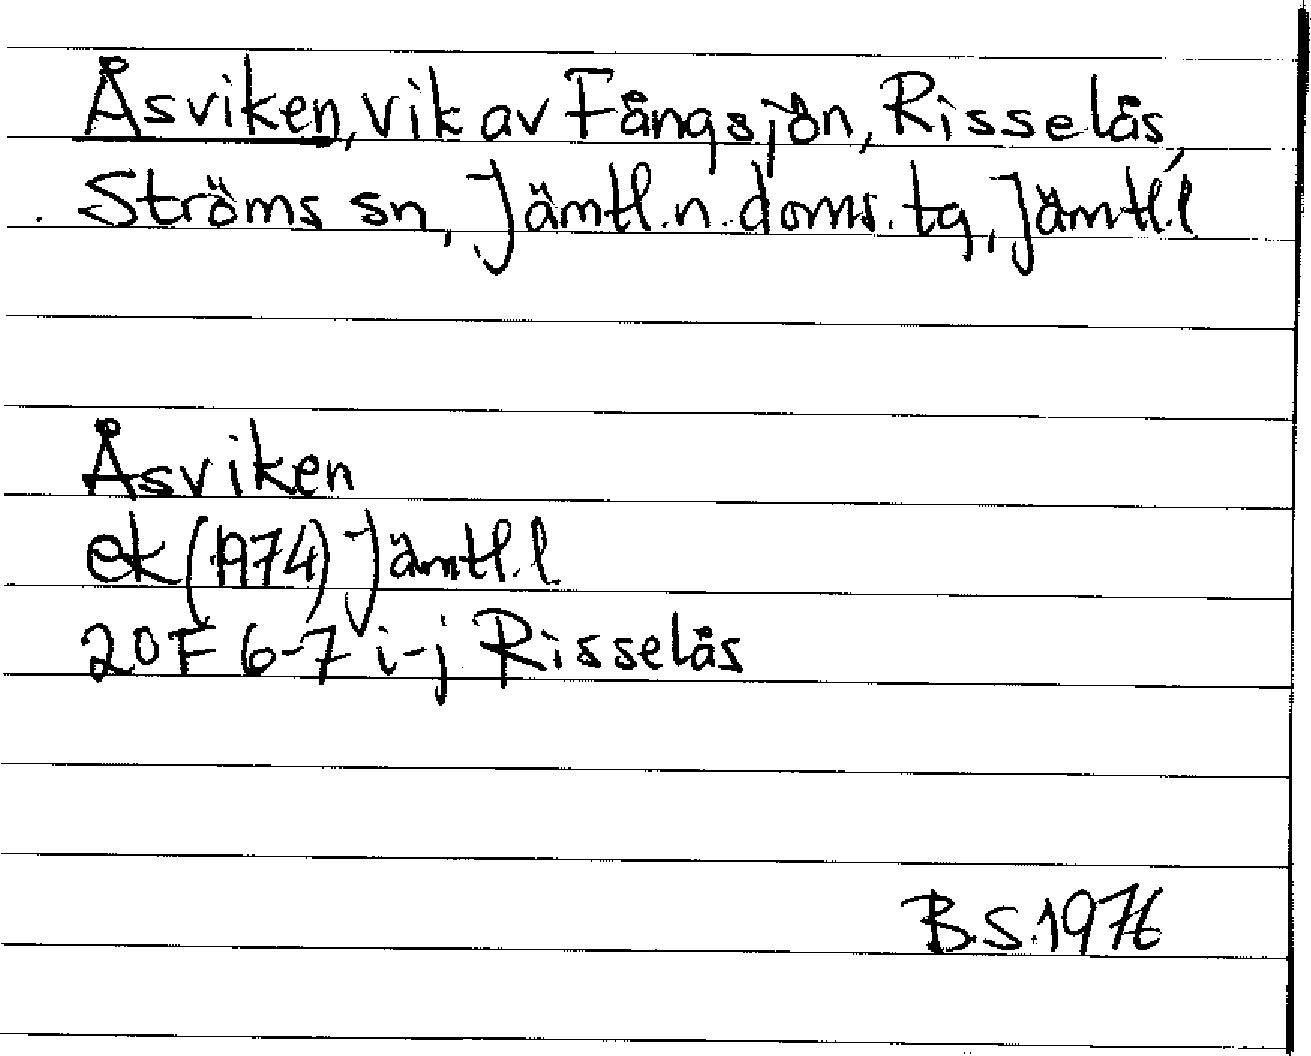 Åsviken, vik av Fångsjön, Risselås,
Ströms sn, Jämtl.n.doms.tg, Jämtl.l
Åsviken
ek (1974) Jämtl.l.
20F 6-7 i-j Risselås
B.S.1976